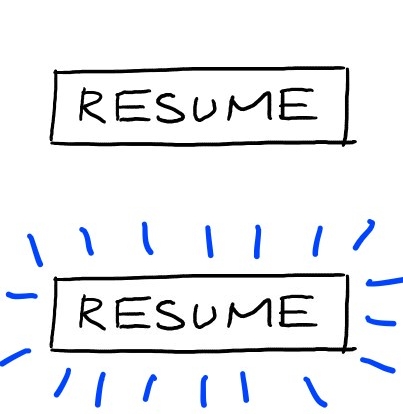 RESUME
RESUME